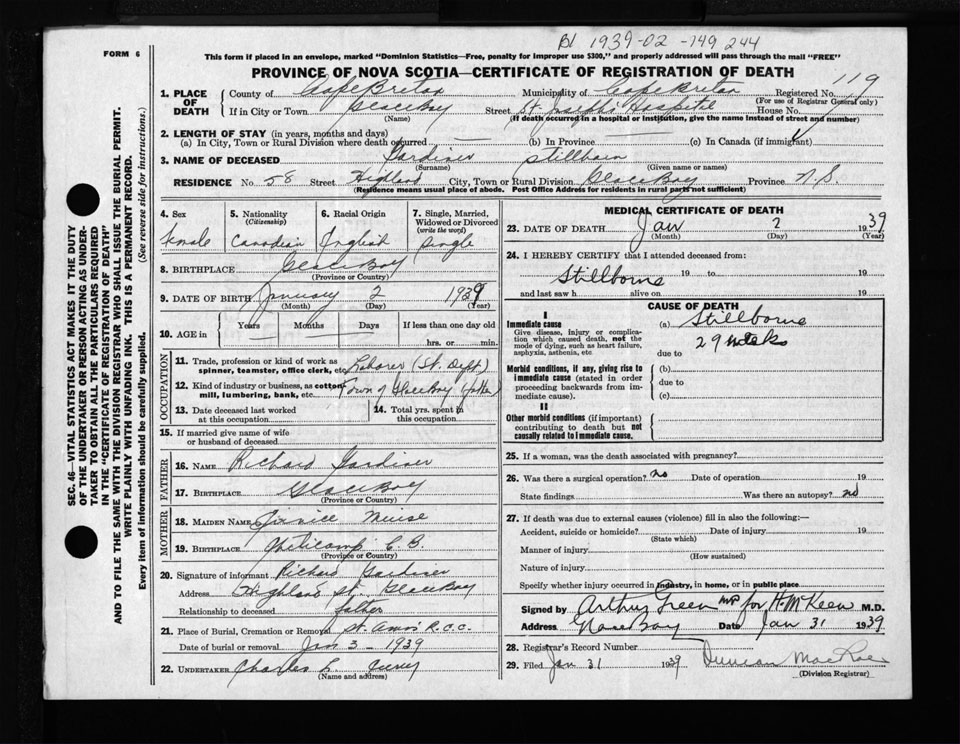 1939-02-149244
FORM 6
This form if placed in an envelope, marked "Dominion Statistics—Free, penalty for improper use $300," and properly addressed will pass through the mail "FREE"
PROVINCE OF NOVA SCOTIA—CERTIFICATE OF REGISTRATION OF DEATH
119
1. PLACE OF DEATH
County of Cape Breton Municipality of Cape Breton Registered No.
(For use of Registrar General only)
If in City or Town Glace Bay Street St. Joseph's Hospital House No.
(Name) (If death occurred in a hospital or institution, give the name instead of street and number)
2. LENGTH OF STAY (in years, months and days)
(a) In City, Town or Rural Division where death occurred — (b) In Province (c) In Canada (if immigrant)
3. NAME OF DECEASED Gardiner Stillborn
(Surname) (Given name or names)
RESIDENCE No. 58 Street Highland City, Town or Rural Division Glace Bay Province N.S.
(Residence means usual place of abode. Post Office Address for residents in rural parts not sufficient)
4. Sex
female
5. Nationality
(Citizenship)
Canadian
6. Racial Origin
English
7. Single, Married, Widowed or Divorced
(write the word)
Single
8. BIRTHPLACE Glace Bay
(Province or Country)
9. DATE OF BIRTH January 2 1939
(Month) (Day) (Year)
10. AGE in
Years Months Days If less than one day
— — hrs. or min.
OCCUPATION
11. Trade, profession or kind of work as spinner, teamster, office clerk, etc. Laborer (St. Dept.)
12. Kind of industry or business, as cotton mill, lumbering, bank, etc. Town of Glace Bay (father)
13. Date deceased last worked at this occupation
14. Total yrs. spent in this occupation
15. If married give name of wife or husband of deceased
FATHER
16. NAME Richard Gardiner
17. BIRTHPLACE Glace Bay
(Province or Country)
MOTHER
18. MAIDEN NAME Muise
19. BIRTHPLACE Cheticamp C.B.
(Province or Country)
20. Signature of informant Richard Gardiner
Address Highland St. Glace Bay
Relationship to deceased father
21. Place of Burial, Cremation or Removal St. Anns R.C.C.
Date of burial or removal Jan 3 - 1939
22. UNDERTAKER Charles L. Curry
(Name and address)
MEDICAL CERTIFICATE OF DEATH
23. DATE OF DEATH Jan 2 1939
(Month) (Day) (Year)
24. I HEREBY CERTIFY that I attended deceased from:
Stillborne 19 to 19
and last saw h alive on 19
CAUSE OF DEATH
I
Immediate cause
Give disease, injury or complication which caused death, not the mode of dying, such as heart failure, asphyxia, asthenia, etc
(a) Stillborne
29 weeks
due to
Morbid conditions, if any, giving rise to immediate cause (stated in order proceeding backwards from immediate cause).
(b)
due to
(c)
II
Other morbid conditions (if important) contributing to death but not causally related to immediate cause.
25. If a woman, was the death associated with pregnancy?
26. Was there a surgical operation? no Date of operation 19
State findings Was there an autopsy? no
27. If death was due to external causes (violence) fill in also the following:—
Accident, suicide or homicide? Date of injury 19
(State which)
Manner of injury
(How sustained)
Nature of injury
Specify whether injury occurred in industry, in home, or in public place
Signed by Arthur Green for H. McKeen M.D.
Address Glace Bay Date Jan 31 1939
28. Registrar's Record Number
29. Filed Jan 31 1939 Duncan MacRae
(Division Registrar)
SEC. 46—VITAL STATISTICS ACT MAKES IT THE DUTY
OF THE UNDERTAKER OR PERSON ACTING AS UNDERTAKER TO OBTAIN ALL THE PARTICULARS REQUIRED
IN THE "CERTIFICATE OF REGISTRATION OF DEATH"
AND TO FILE THE SAME WITH THE DIVISION REGISTRAR WHO SHALL ISSUE THE BURIAL PERMIT.
WRITE PLAINLY WITH UNFADING INK. THIS IS A PERMANENT RECORD.
Every item of information should be carefully supplied. (See reverse side for instructions.)